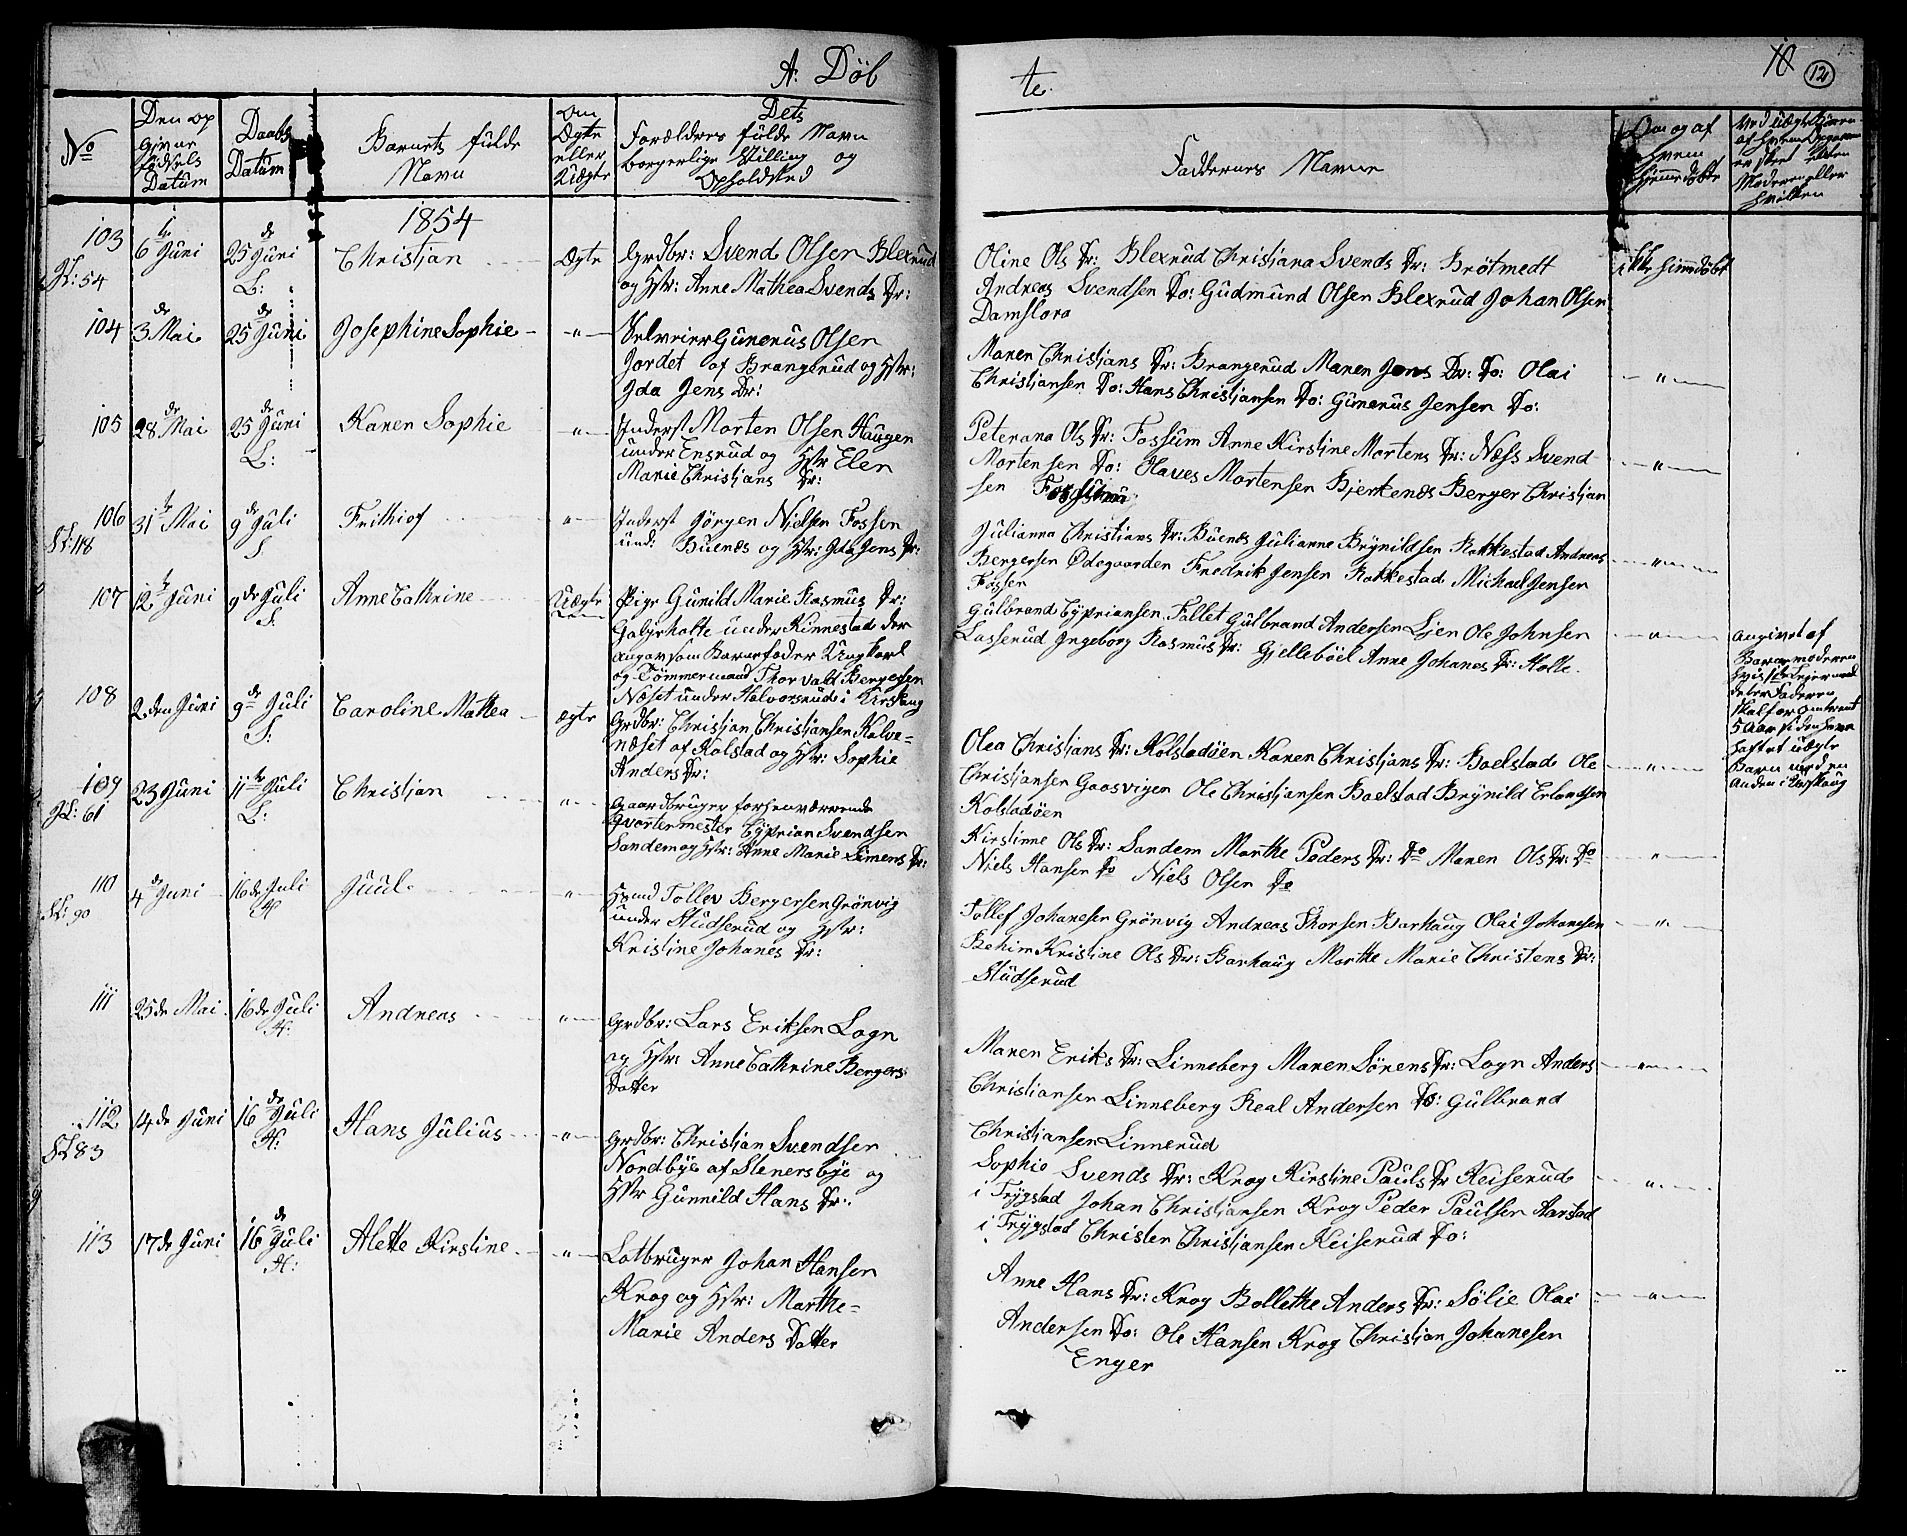 A: Døb
te.
10
12
No
Den op
givne
Fødsels
Datum
Daabs
Datum
Barnets fulde
Navn
Om
Ægte
eller
Uægte
Dets
Forældres fulde Navn
borgerlige Stilling og
Opholdsted
Faddernes Navne
Om og af
hvem
hjemmedøbt
1854
103
6te Juni
25de Juni
Christian
Ægte
Grdbr: Svend Olsen Blexrud
Oline Ols Dr: Blexrud Christiana Svends Dr: Brøtmedt
ikke himmdøbt
GL: 54
L:
og Hstr: Anne Mathea Svends Dr:
Andreas Svendsen Do: Gudmund Olsen Blexrud Johan Olsen
Damslora
104
3de Mai
25de Juni
Josephine Sophie
"
Selveier Gunerus Olsen
Jordet af Brangerud og Hstr:
Ida Jens Dr:
Maren Christians Dr: Brangerud Maren Jens Dr: Do: Olai
Christiansen Do: Hans Christiansen Do: Gunerus Jensen Do:
"
105
28de Mai
25de Juni
L:
Karen Sophie
"
Inderst Morten Olsen Haugen
under Ensrud og Hstr Elen
Marie Christians Dr:
Peterana Ols Dr: Fossum Anne Kirstine Mortens Dr: Næss Svend
Mortensen Do: Olaves Mortensen Bjerkenæs Berger Christian
sen Fossum
"
106
SL: 118
31te Mai
9de Juli
S
Frithiof
"
Inderst Jørgen Nielsen Fossen
und: Buenæs og Hstr: Ida Jens Dr:
Julianna Christians Dr: Buenæs Julianne Brynildsen Rakkestad Andreas
Bergersen Ødegaarden Fredrik Jensen Rakkestad Michael Jensen
Fossen
"
107
12te Juni
9de Juli
S.
Anne Cathrine
Uægte
Pige Gunild Marie Rasmus Dr:
under Kinnestad der
angav som Barnefader Ungkarl
og Tømmermand Thorvald Bergersen
Næset under Halvorsrud i Urskoug
Gulbrand Cypriansen Tallet Gulbrand Andersen Lien Ole Johnsen
Lasserud Ingeborg Rasmus Dr: Gjellebøel Anne Johanes Dr: Holte.
"
angivet af
Barnemoderen
5 Aar siden have
havt et uægte
Barn med en
anden i Urskoug
108
2den Juni
9de Juli
S:
Caroline Mathea
Ægte
Grdbr: Christian Christiansen Kalve=
næset af Kolstad og Hstr: Sophie
Anders Dr:
Olea Christians Dr: Kolstadøen Karen Christians Dr: Baelstad Ole
Christiansen Gaasvigen Ole Christiansen Baelstad Brynild Erlandsen
Kolstadøen
"
109
GL: 61
23 Juni
11te Juli
L:
Christian
"
Gaardbruger forhenværende
Qvartermester Cyprian Svendsen
Sandem og Hstr: Anne Marie Simens Dr:
Kirstinne Ols Dr: Sandem Marthe Peders Dr: Do Maren Ols Dr: Do
Niels Hansen Do Niels Olsen Do
"
110
SL: 90
4de Juni
16de Juli
H
Juul
"
Hsmd Tollev Bergersen Grønvig
under Studserud og Hstr:
Kristine Johanes Dr:
Tollef Johanesen Grønvig Andreas Thorsen Barhaug Olai Johanesen
Rehim Kristine Ols Dr: Barhaug Marthe Marie Christens Dr:
Studserud
"
111
25de Mai
16de Juli
H:
Andreas
"
Grdbr: Lars Eriksen Logn
og Hstr: Anne Cathrine Bergers
Datter
Maren Eriks Dr: Linneberg Maren Sørens Dr: Logn Anders
Christiansen Linneberg Real Andersen Do: Gulbrand
Christiansen Linnerud
"
112
SL 83
14de Juni
16de Juli
H:
Hans Julius
"
Grdbr: Christian Svendsen
Nordbye af Stenersbye og
Hstr Gunnild Hans Dr:
Sophie Svends Dr: Krog Kirstine Pauls Dr Keiserud
i Trygstad Johan Christiansen Krog Peder Paulsen Harstad
i Trygstad Christen Christiansen Keiserud Do:
"
113
17de Juni
16de Juli
H:
Alette Kirstine
"
Lotbruger Johan Hansen
Krog og Hstr: Marthe=
Marie Anders Datter
Anne Hans Dr: Krog Bollethe Anders Dr: Sølie Olai
Andersen Do: Ole Hansen Krog Christian Johanesen
Enger
"